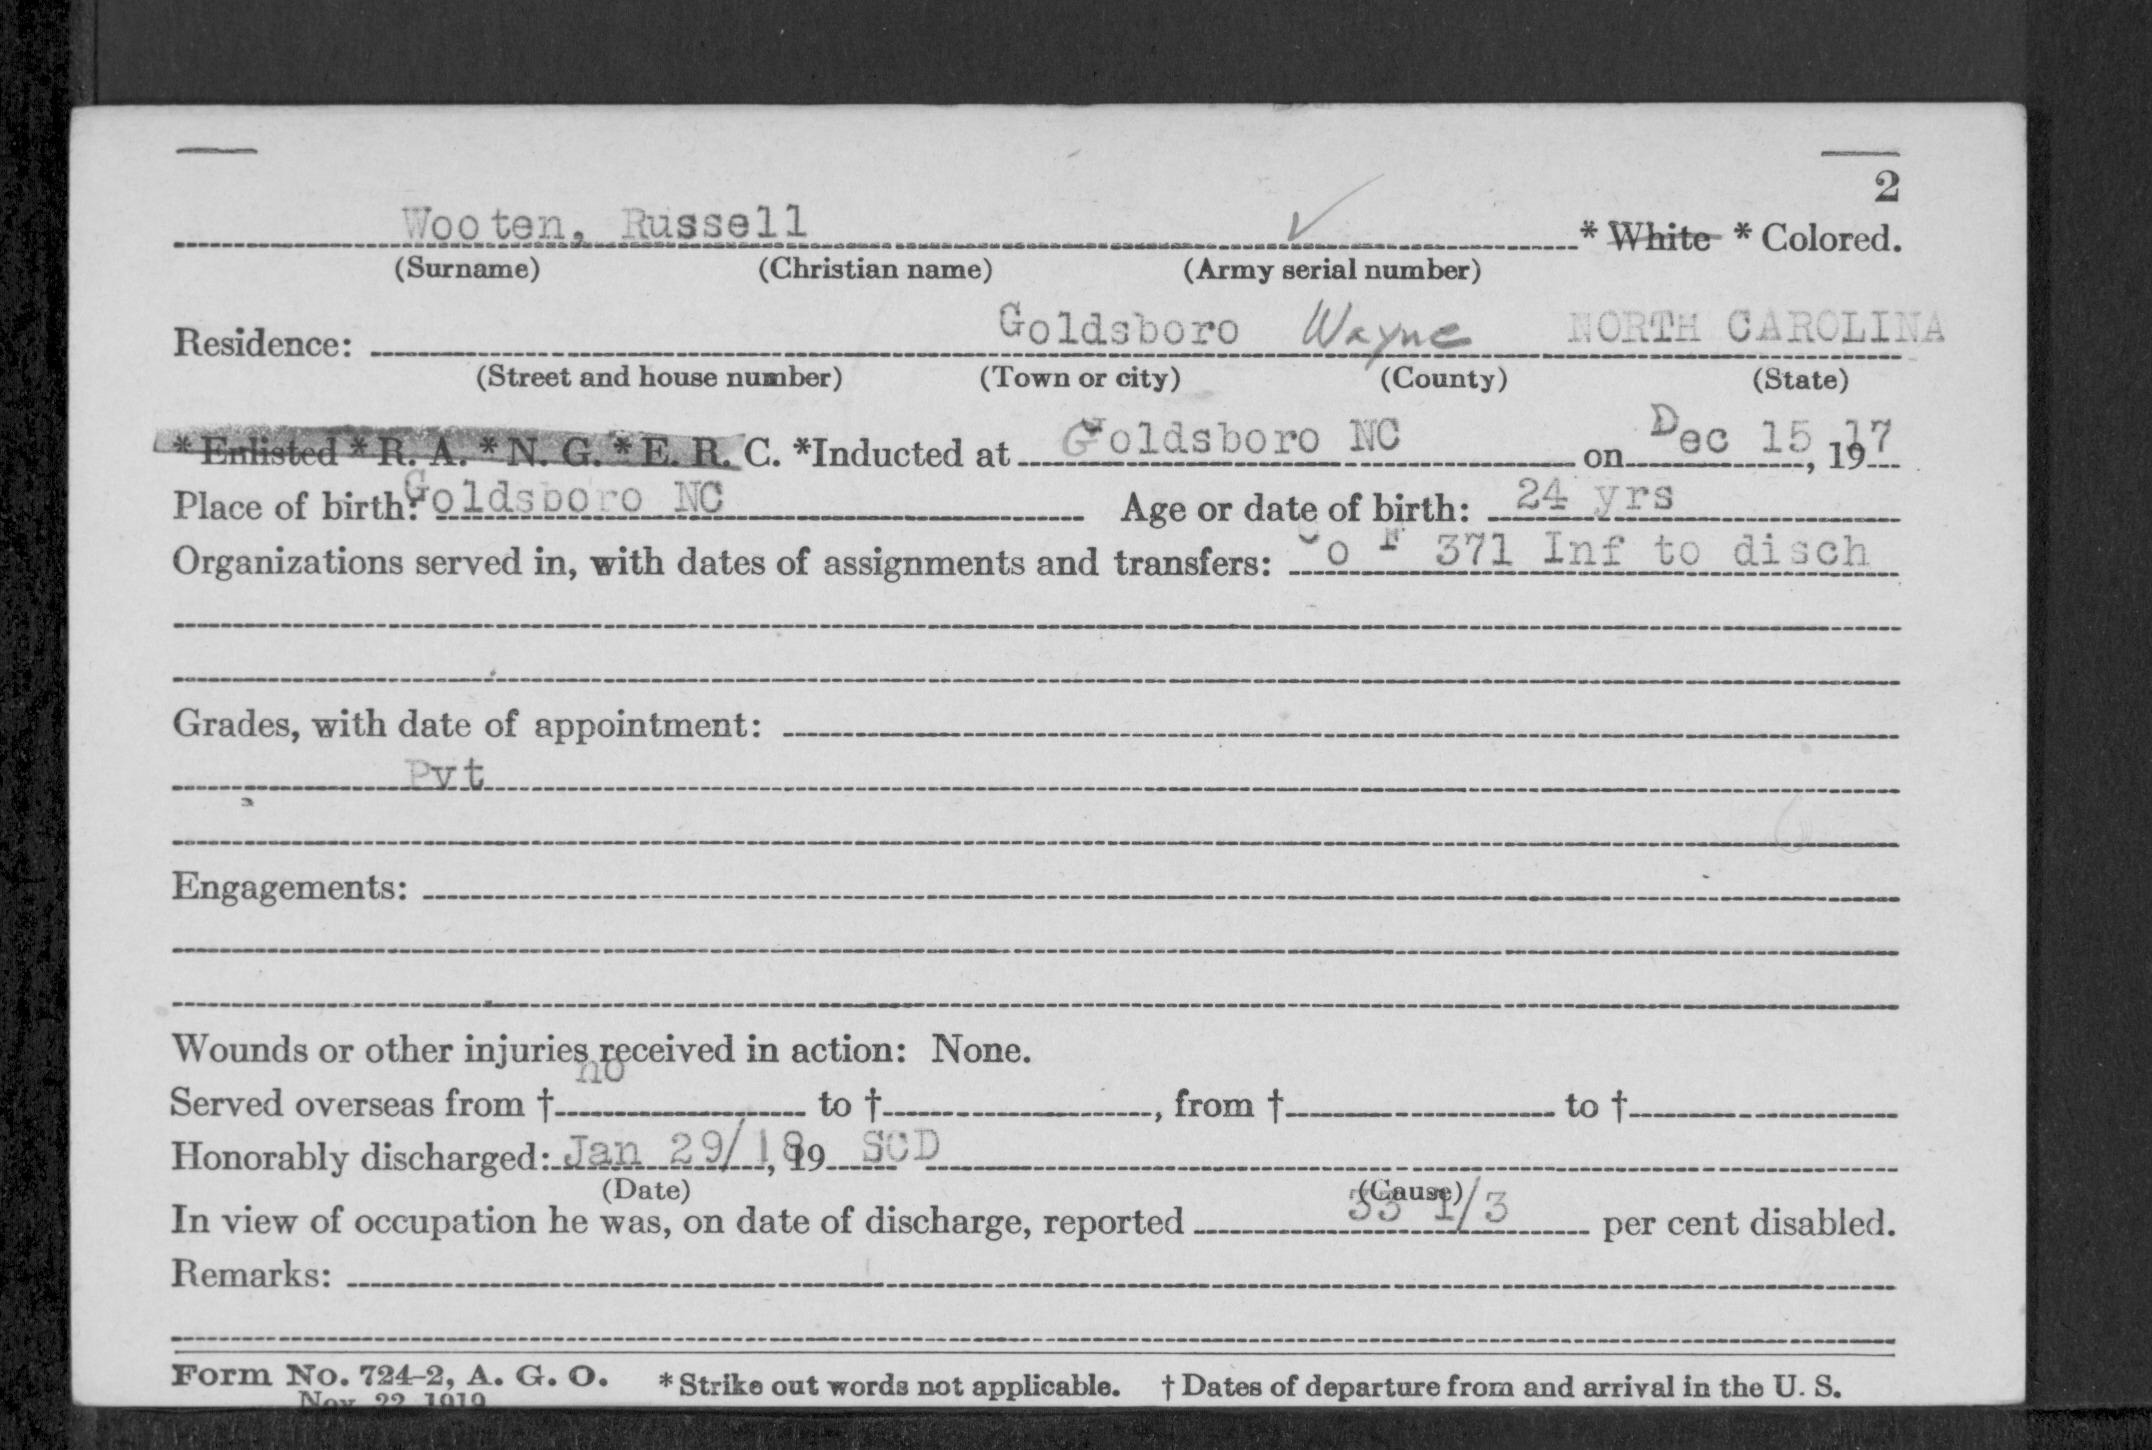 2
Wooten, Russell * White * Colored.
(Surname) (Christian name) (Army serial number)
Residence: Goldsboro Wayne NORTH CAROLINA
(Street and house number) (Town or city) (County) (State)
* Enlisted * R. A. * N. G. * E. R. C. *Inducted at Goldsboro NC on Dec 15, 1917
Place of birth: Goldsboro NC Age or date of birth: 24 yrs
Organizations served in, with dates of assignments and transfers: Co F 371 Inf to disch
Grades, with date of appointment:
Pvt
Engagements:
Wounds or other injuries received in action: None.
Served overseas from † no to †, from † to †
Honorably discharged: Jan 29/18, 19 SCD
(Date) (Cause)
In view of occupation he was, on date of discharge, reported 33 1/3 per cent disabled.
Remarks:
Form No. 724-2, A. G. O. * Strike out words not applicable. † Dates of departure from and arrival in the U. S.
Nov. 22, 1919